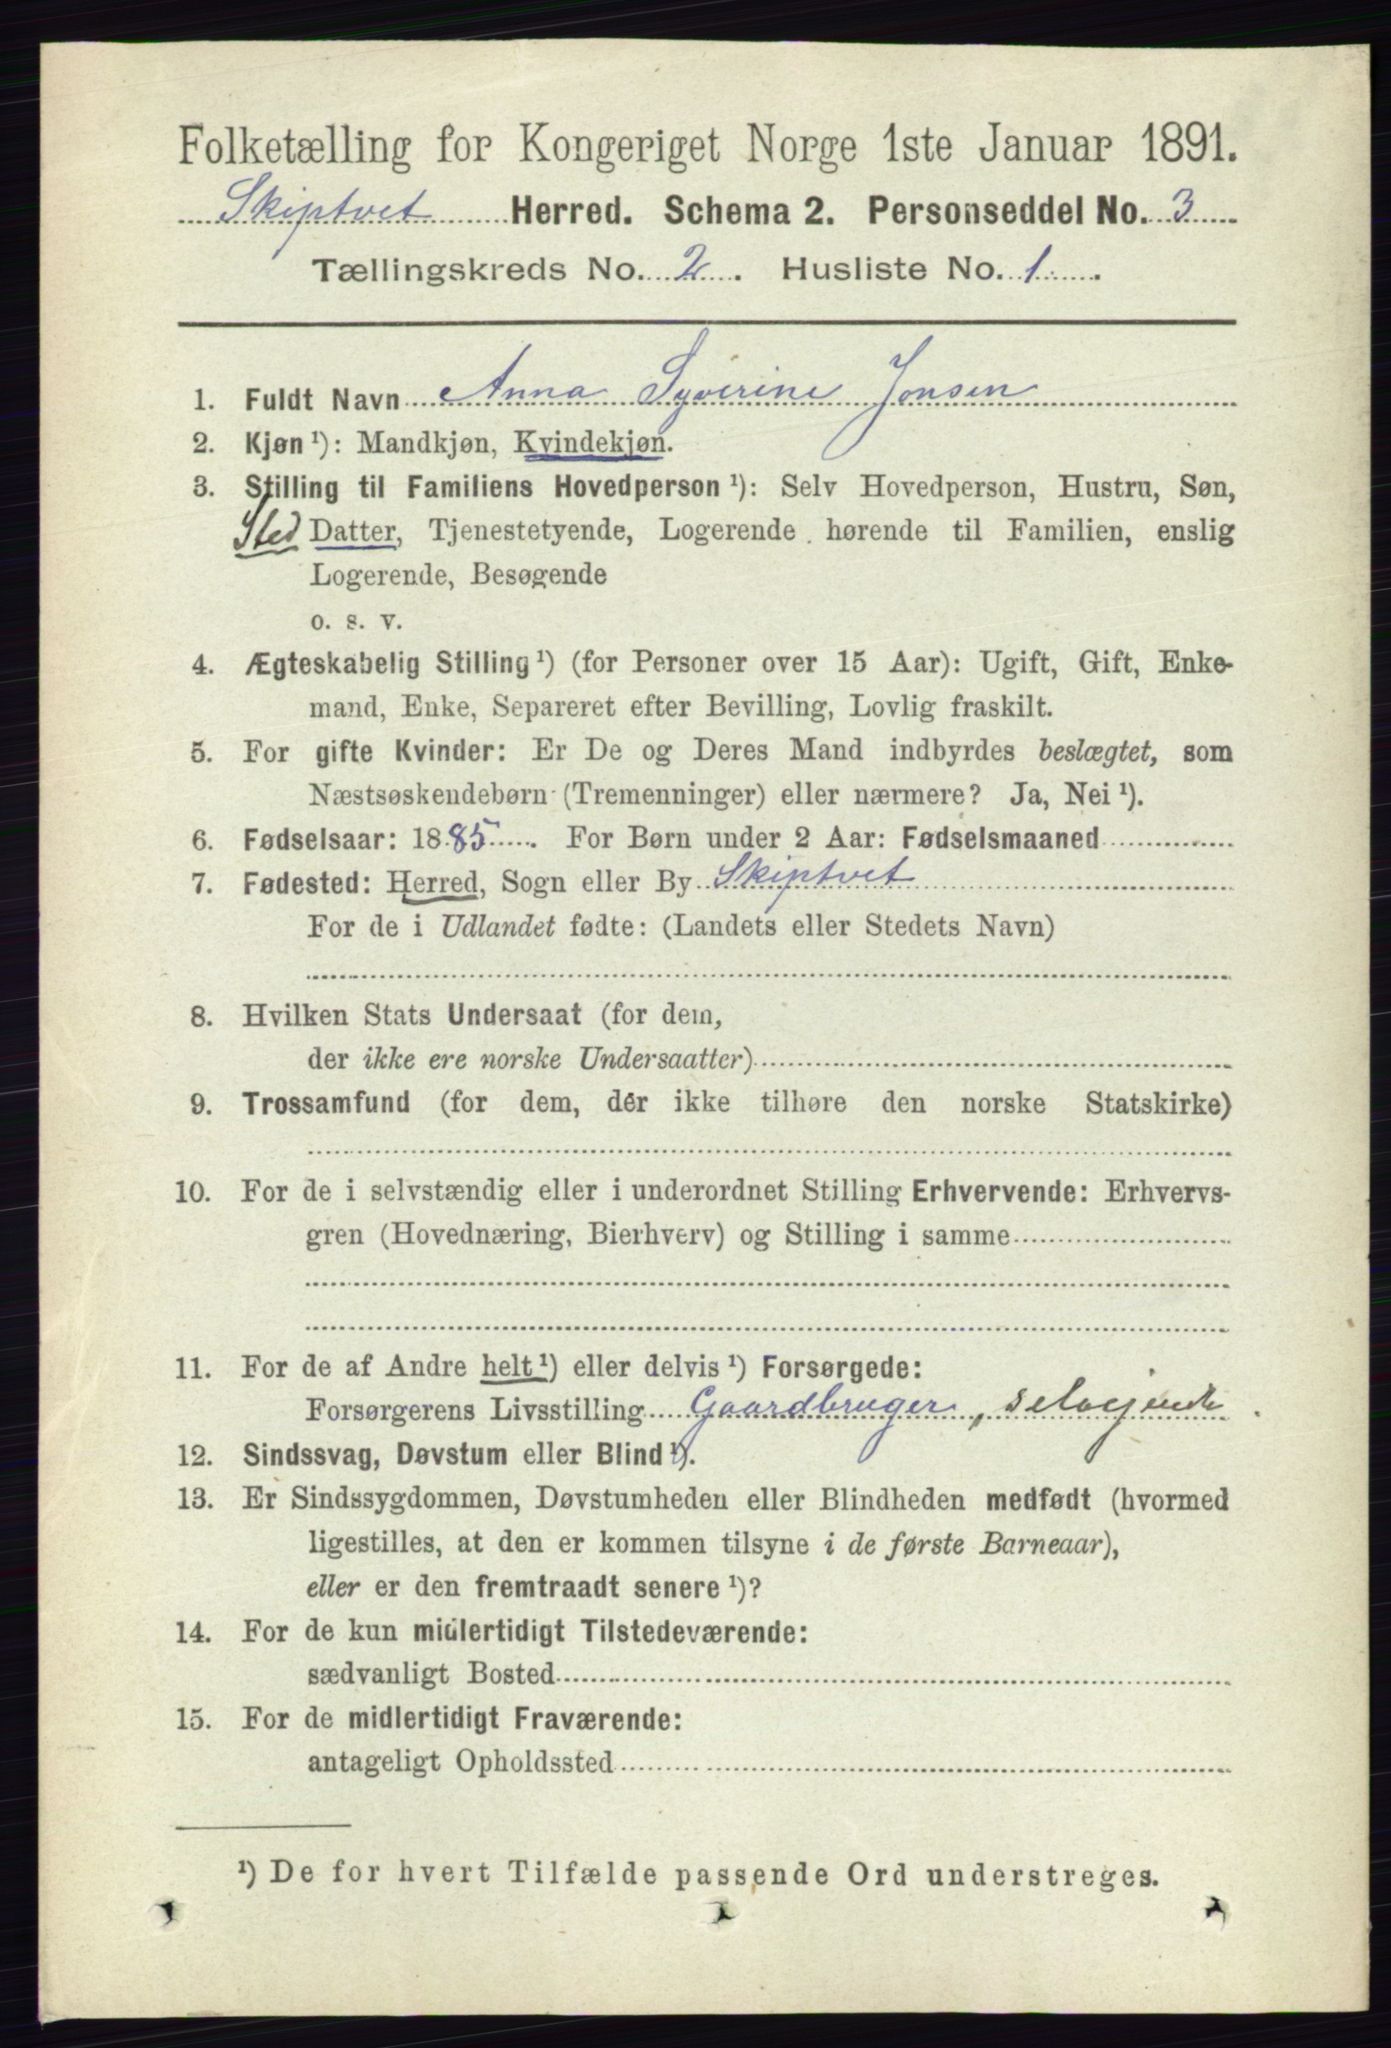 Folketælling for Kongeriget Norge 1ste Januar 1891.
Skiptvet Herred. Schema 2. Personseddel No. 3
Tællingskreds No. 2. Husliste No. 1.
1. Fuldt Navn Anna Syverine Jonsen
2. Kjøn ¹): Mandkjøn, Kvindekjøn.
3. Stilling til Familiens Hovedperson ¹): Selv Hovedperson, Hustru, Søn,
Sted Datter, Tjenestetyende, Logerende hørende til Familien, enslig
Logerende, Besøgende
o. s. v.
4. Ægteskabelig Stilling ¹) (for Personer over 15 Aar): Ugift, Gift, Enke-
mand, Enke, Separeret efter Bevilling, Lovlig fraskilt.
5. For gifte Kvinder: Er De og Deres Mand indbyrdes beslægtet, som
Næstsøskendebørn (Tremenninger) eller nærmere? Ja, Nei ¹).
6. Fødselsaar: 1885. For Børn under 2 Aar: Fødselsmaaned
7. Fødested: Herred, Sogn eller By Skiptvet
For de i Udlandet fødte: (Landets eller Stedets Navn)
8. Hvilken Stats Undersaat (for dem,
der ikke ere norske Undersaatter)
9. Trossamfund (for dem, der ikke tilhøre den norske Statskirke)
10. For de i selvstændig eller i underordnet Stilling Erhvervende: Erhvervs-
gren (Hovednæring, Bierhverv) og Stilling i samme
11. For de af Andre helt ¹) eller delvis ¹) Forsørgede:
Forsørgerens Livsstilling Gaardbruger, selvejende.
12. Sindssvag, Døvstum eller Blind ¹).
13. Er Sindssygdommen, Døvstumheden eller Blindheden medfødt (hvormed
ligestilles, at den er kommen tilsyne i de første Barneaar),
eller er den fremtraadt senere ¹)?
14. For de kun midlertidigt Tilstedeværende:
sædvanligt Bosted
15. For de midlertidigt Fraværende:
antageligt Opholdssted
¹) De for hvert Tilfælde passende Ord understreges.